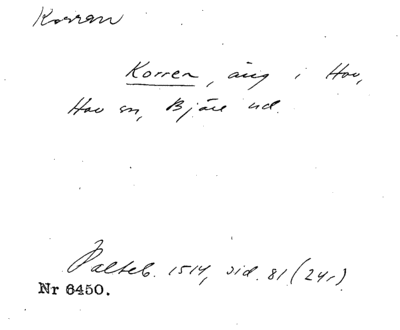 Korran
Korren, äng i Hov,
Hov sn, Bjäre hd.
Palteb. 1514, sid. 81 (24r)
Nr 6450.